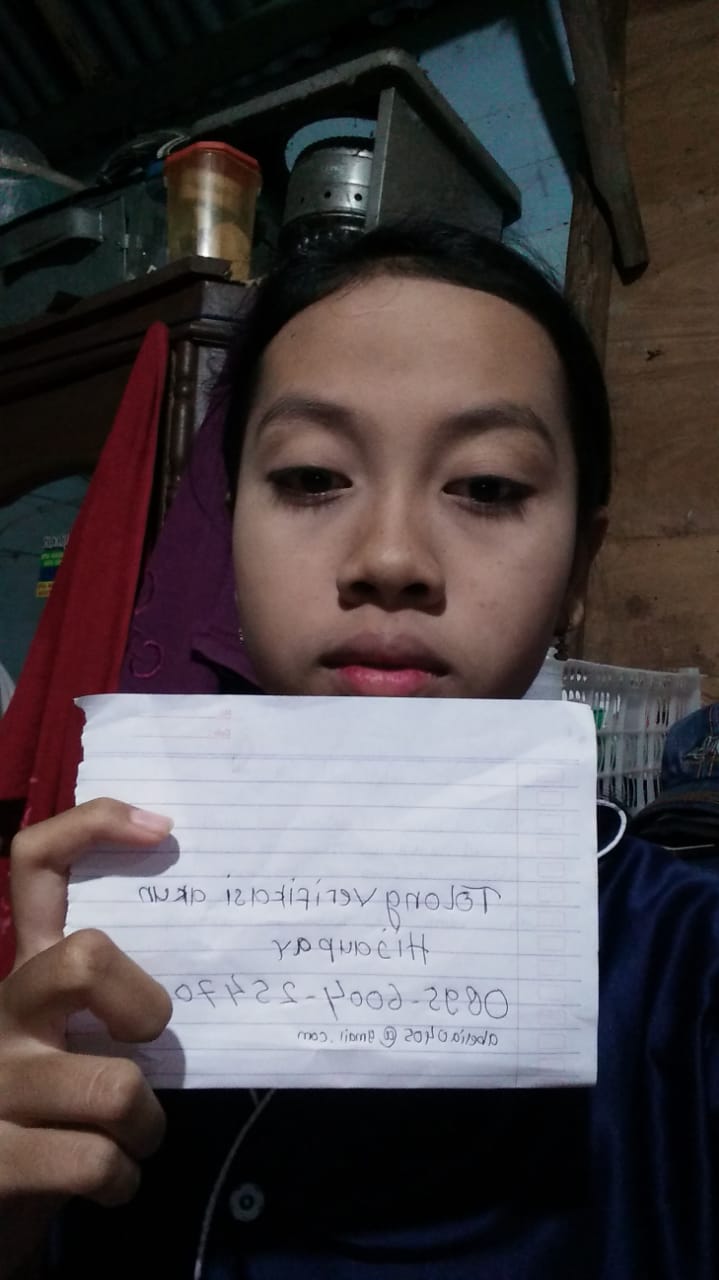 Tolong verifikasi akun
Hijaupay
0895-6004-25470
abelia0405@gmail.com